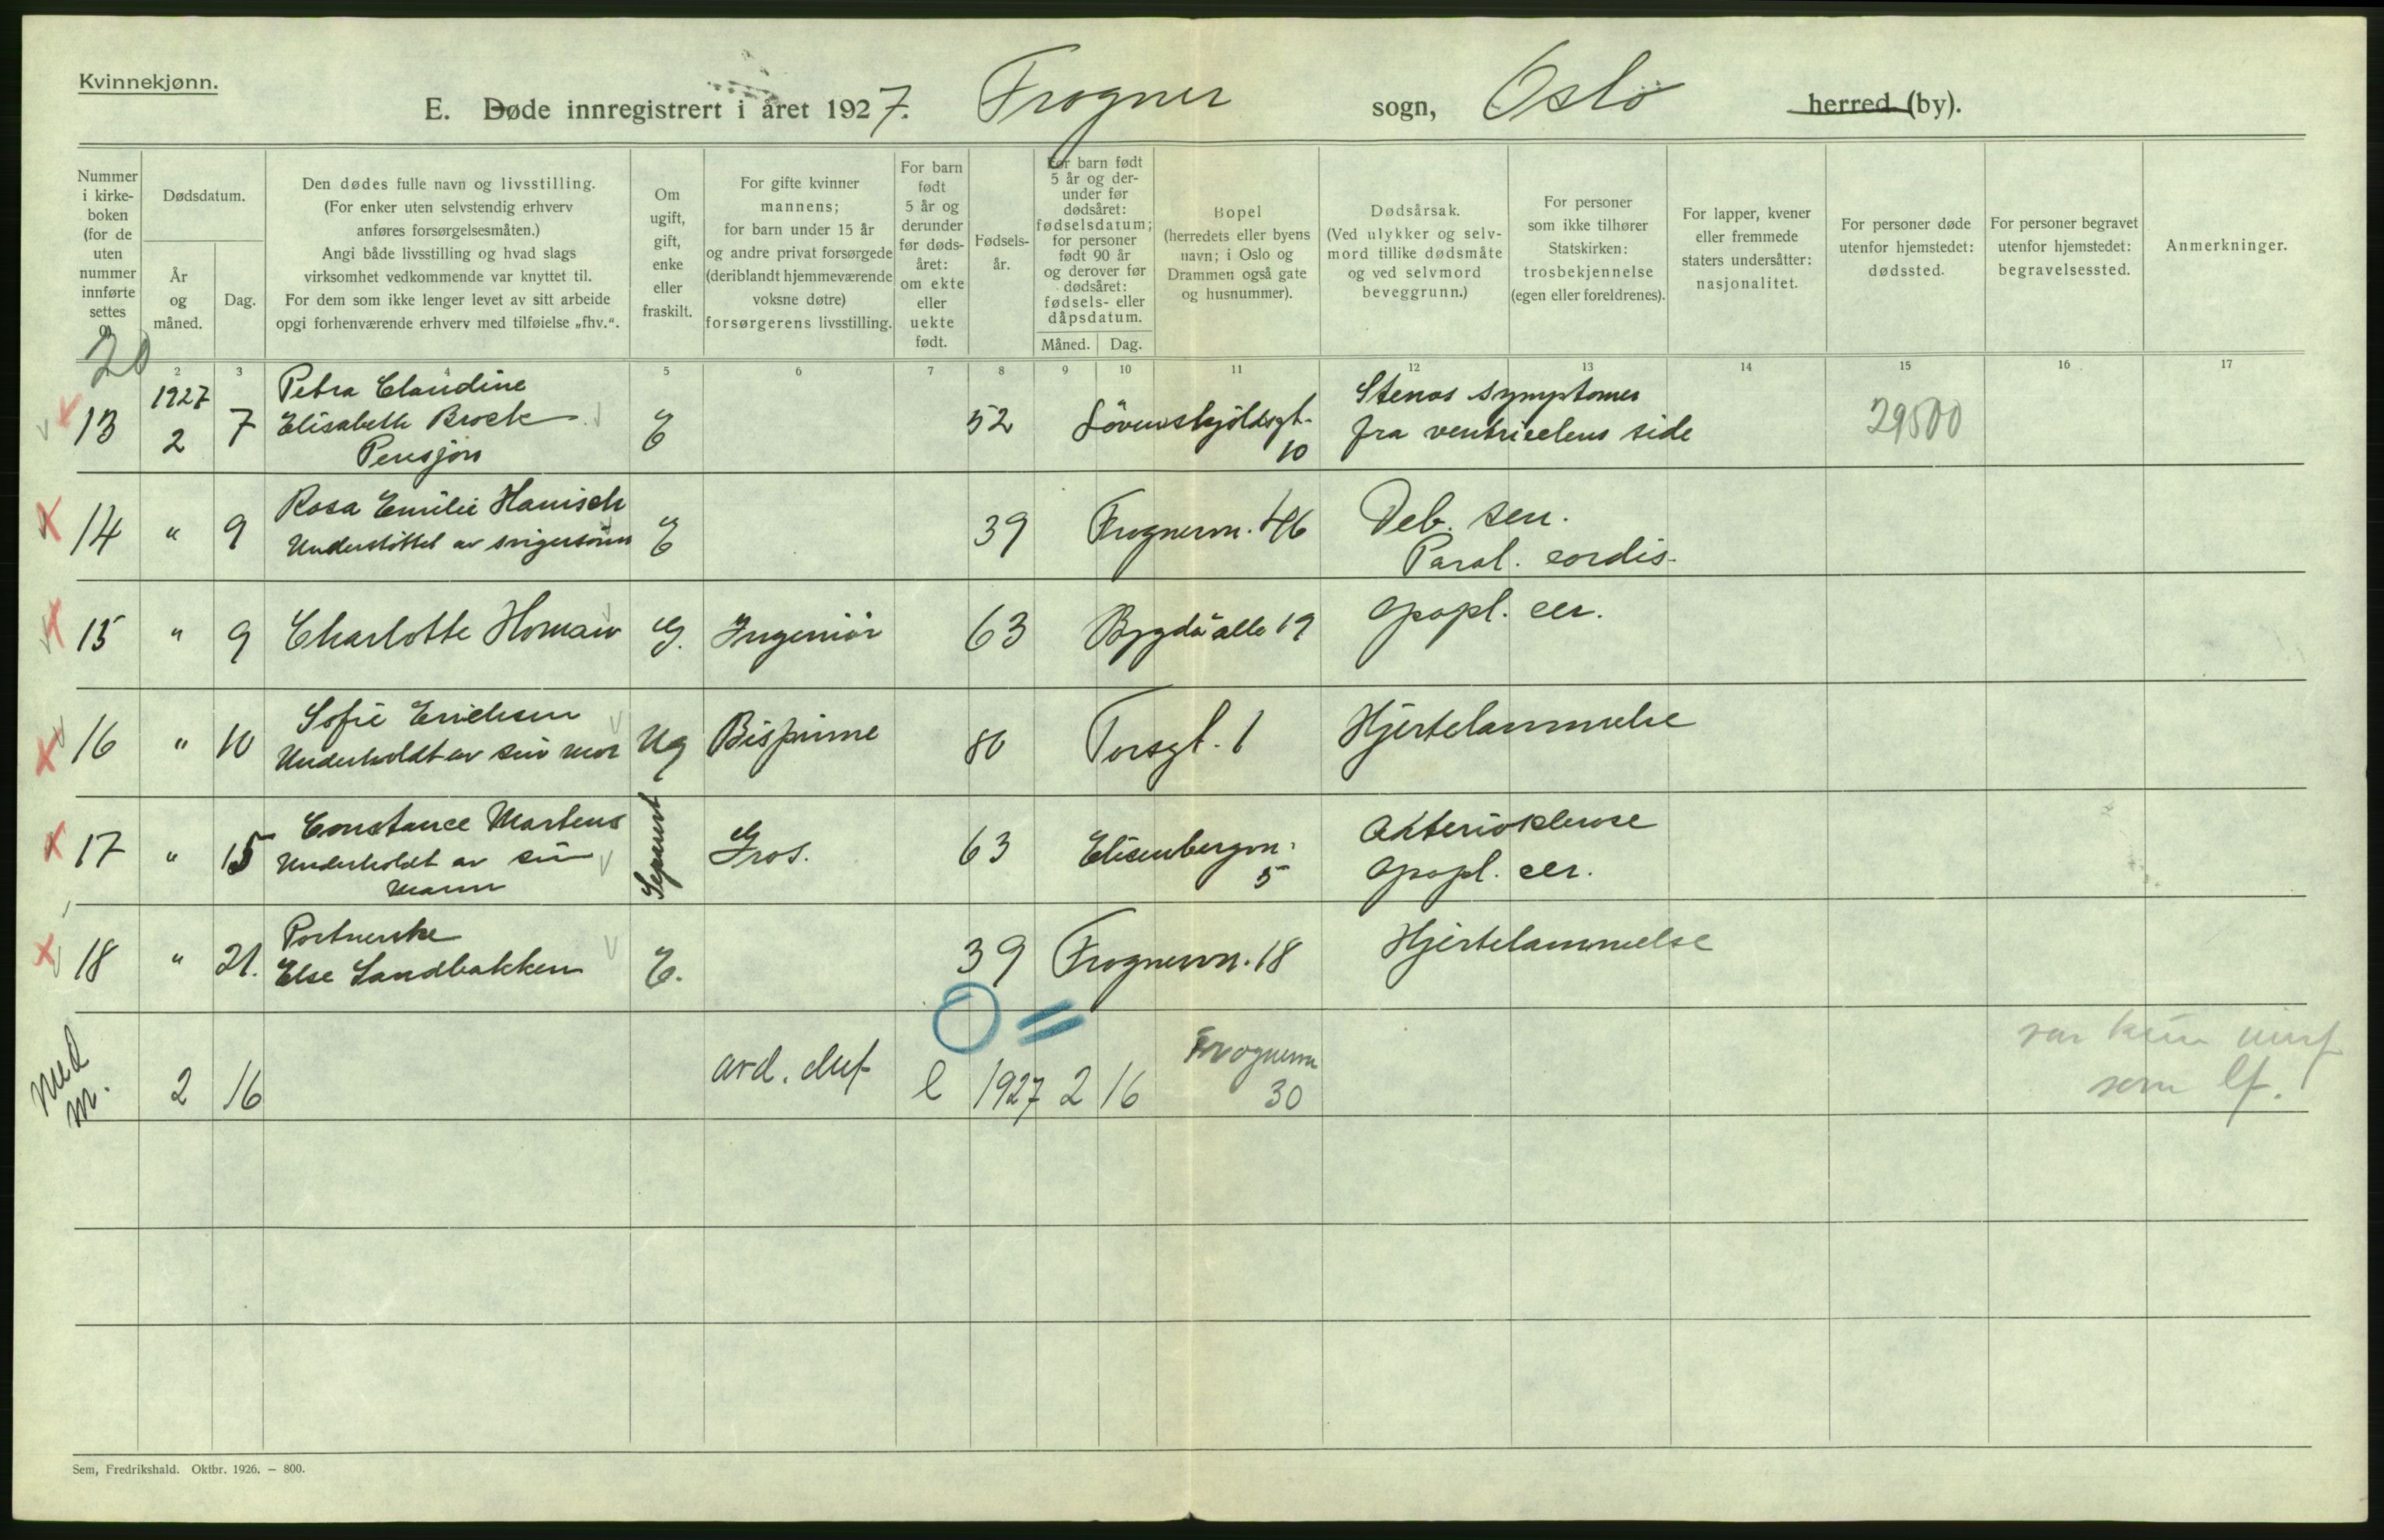 Kvinnekjønn.
E. Døde innregistrert i året 1927. Frogner sogn, Oslo herred (by).
Nummer i kirke-boken (for de uten nummer innførte settes 0).
Dødsdatum.
År og måned.
Dag.
Den dødes fulle navn og livsstilling.
(For enker uten selvstendig erhverv
anføres forsørgelsesmåten.)
Angi både livsstilling og hvad slags
virksomhet vedkommende var knyttet til.
For dem som ikke lenger levet av sitt arbeide
opgi forhenværende erhverv med tilføielse „fhv.“.
Om
ugift,
gift,
enke
eller
fraskilt.
For gifte kvinner
mannens;
for barn under 15 år
og andre privat forsørgede
(deriblandt hjemmeværende
voksne døtre)
forsørgerens livsstilling.
For barn
født
5 år og
derunder
før døds-
året:
om ekte
eller
uekte
født.
Fødsels-
år.
For barn født
5 år og der-
under før
dødsåret:
fødselsdatum;
for personer
født 90 år
og derover før
dødsåret:
fødsels- eller
dåpsdatum.
Måned. Dag.
Bopel
(herredets eller byens
navn; i Oslo og
Drammen også gate
og husnummer).
Dødsårsak.
(Ved ulykker og selv-
mord tillike dødsmåte
og ved selvmord
beveggrunn.)
For personer
som ikke tilhører
Statskirken:
trosbekjennelse
(egen eller foreldrenes).
For lapper, kvener
eller fremmede
staters undersåtter:
nasjonalitet.
For personer døde
utenfor hjemstedet:
dødssted.
For personer begravet
utenfor hjemstedet:
begravelsessted.
Anmerkninger.
20
2 3 4 5 6 7 8 9 10 11 12 13 14 15 16 17
1927 Petra Claudine Stenos symptomer
13 2 7 Elisabeth Brock E 52 Løvenskjoldsgt. fra ventricelens side 29500
Pensjon 10
Rosa Emilie Hanisch Deb. sen.
14 " 9 Understøttet av svigersønn E 39 Frognervn. 46 Paral. cordis.
15 " 9 Charlotte Homan G. Ingeniør 63 Bygdø alle 19 Apopl. cer.
Sofie Erichsen
16 " 10 Underholdt av sin mor Ug Bispinne 80 Torsgt. 1 Hjertelammelse
Constance Martens Arteriosklerose
17 " 15 Underholdt av sin Separert Gros. 63 Elisenbergvn. Apopl. cer.
mann 5
Portnerske
18 " 21. Else Sandbakken E. 39 Frognervn. 18 Hjertelammelse
med m. 2 16 l 1927 2 16 Frognervn 30
Sem, Fredrikshald. Oktbr. 1926. – 800.